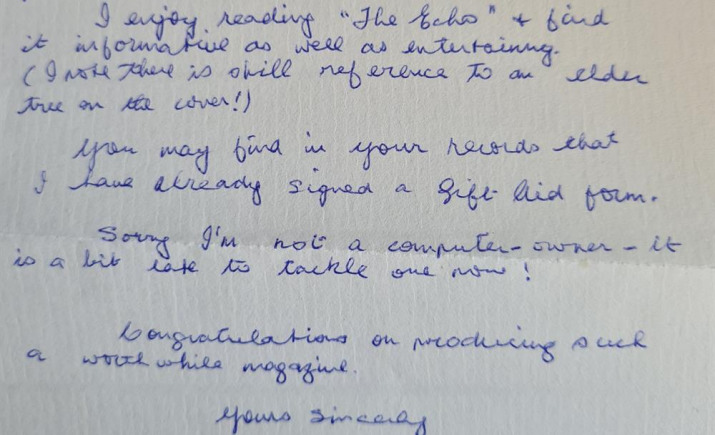 I enjoy reading "The Echo" & find
it informative as well as entertaining.
(I note there is still reference to an elder
tree on the cover!)
You may find in your records that
I have already signed a Gift Aid form.
Sorry I'm not a computer-owner - it
is a bit late to tackle one now!
Congratulations on producing such
a worthwhile magazine.
Yours sincerely